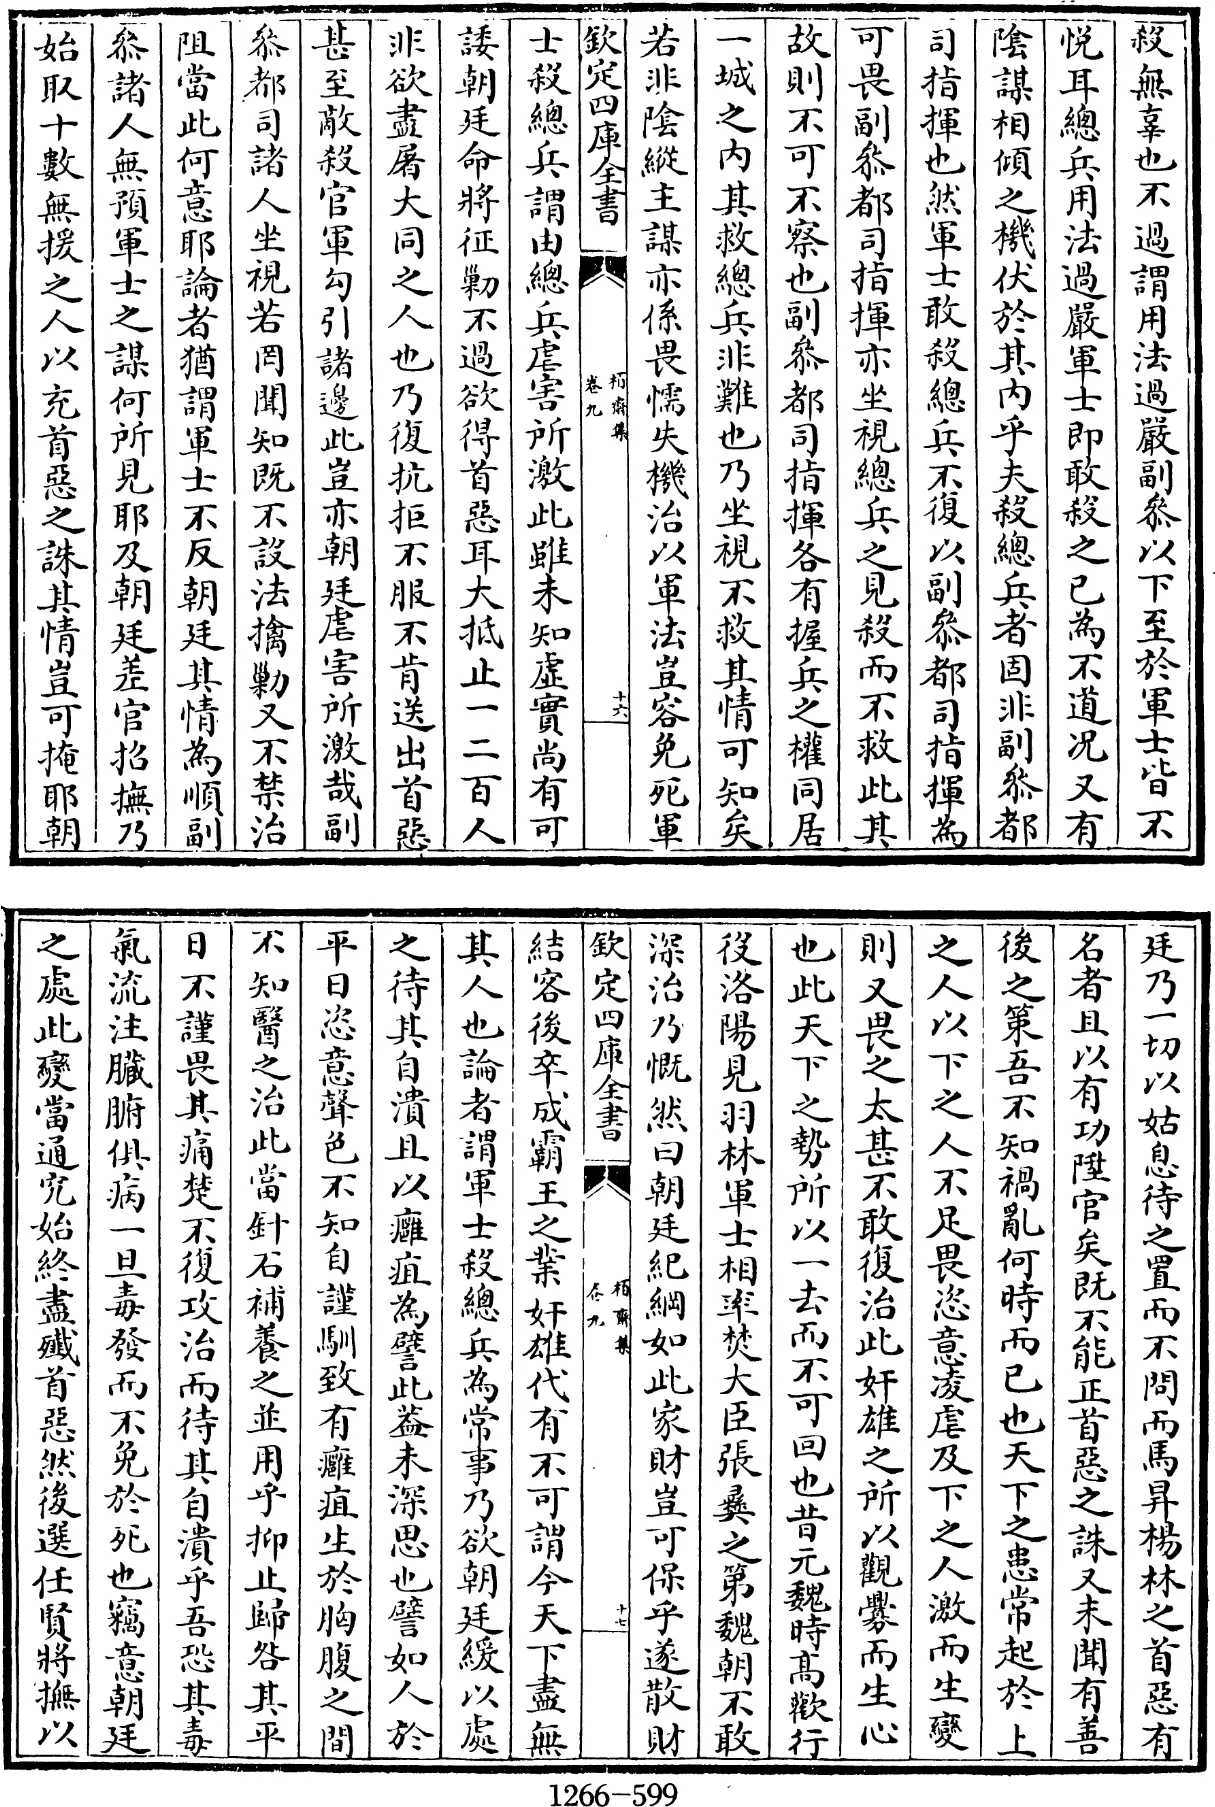 殺無辜也不過謂用法過嚴副叅以下至於軍士皆不
悅耳總兵用法過嚴軍士即敢殺之已為不道况又有
陰謀相傾之機伏於其内乎夫殺總兵者固非副叅都
司指揮也然軍士敢殺總兵不復以副叅都司指揮為
可畏副叅都司指揮亦坐視總兵之見殺而不救此其
故則不可不察也副叅都司指揮各有握兵之權同居
一城之内其救總兵非難也乃坐視不救其情可知矣
若非陰縱主謀亦係畏懦失機治以軍法豈容免死軍
欽定四庫全書
栢齋集
卷九
十六
士殺總兵謂由總兵虐害所激此雖未知虛實尚有可
諉朝廷命將征勦不過欲得首惡耳大抵止一二百人
非欲盡屠大同之人也乃復抗拒不服不肯送出首惡
甚至敵殺官軍勾引諸邊此豈亦朝廷虐害所激哉副
叅都司諸人坐視若罔聞知既不設法擒勦又不禁治
阻當此何意耶論者猶謂軍士不反朝廷其情為順副
叅諸人無預軍士之謀何所見耶及朝廷差官招撫乃
始取十數無援之人以充首惡之誅其情豈可掩耶朝
廷乃一切以姑息待之置而不問而馬昇楊林之首惡有
名者且以有功陞官矣既不能正首惡之誅又未聞有善
後之策吾不知禍亂何時而已也天下之患常起於上
之人以下之人不足畏恣意凌虐及下之人激而生變
則又畏之太甚不敢復治此奸雄之所以觀釁而生心
也此天下之勢所以一去而不可回也昔元魏時髙歡行
役洛陽見羽林軍士相率焚大臣張彞之第魏朝不敢
深治乃慨然曰朝廷紀綱如此家財豈可保乎遂散財
欽定四庫全書
栢齋集
卷九
十七
結客後卒成霸王之業奸雄代有不可謂今天下盡無
其人也論者謂軍士殺總兵為常事乃欲朝廷緩以處
之待其自潰且以癰疽為譬此葢未深思也譬如人於
平日恣意聲色不知自謹馴致有癰疽生於胸腹之間
不知醫之治此當針石補養之並用乎抑止歸咎其平
日不謹畏其痛楚不復攻治而待其自潰乎吾恐其毒
氣流注臟腑俱病一旦毒發而不免於死也竊意朝廷
之處此變當通究始終盡殲首惡然後選任賢將撫以
1266-599